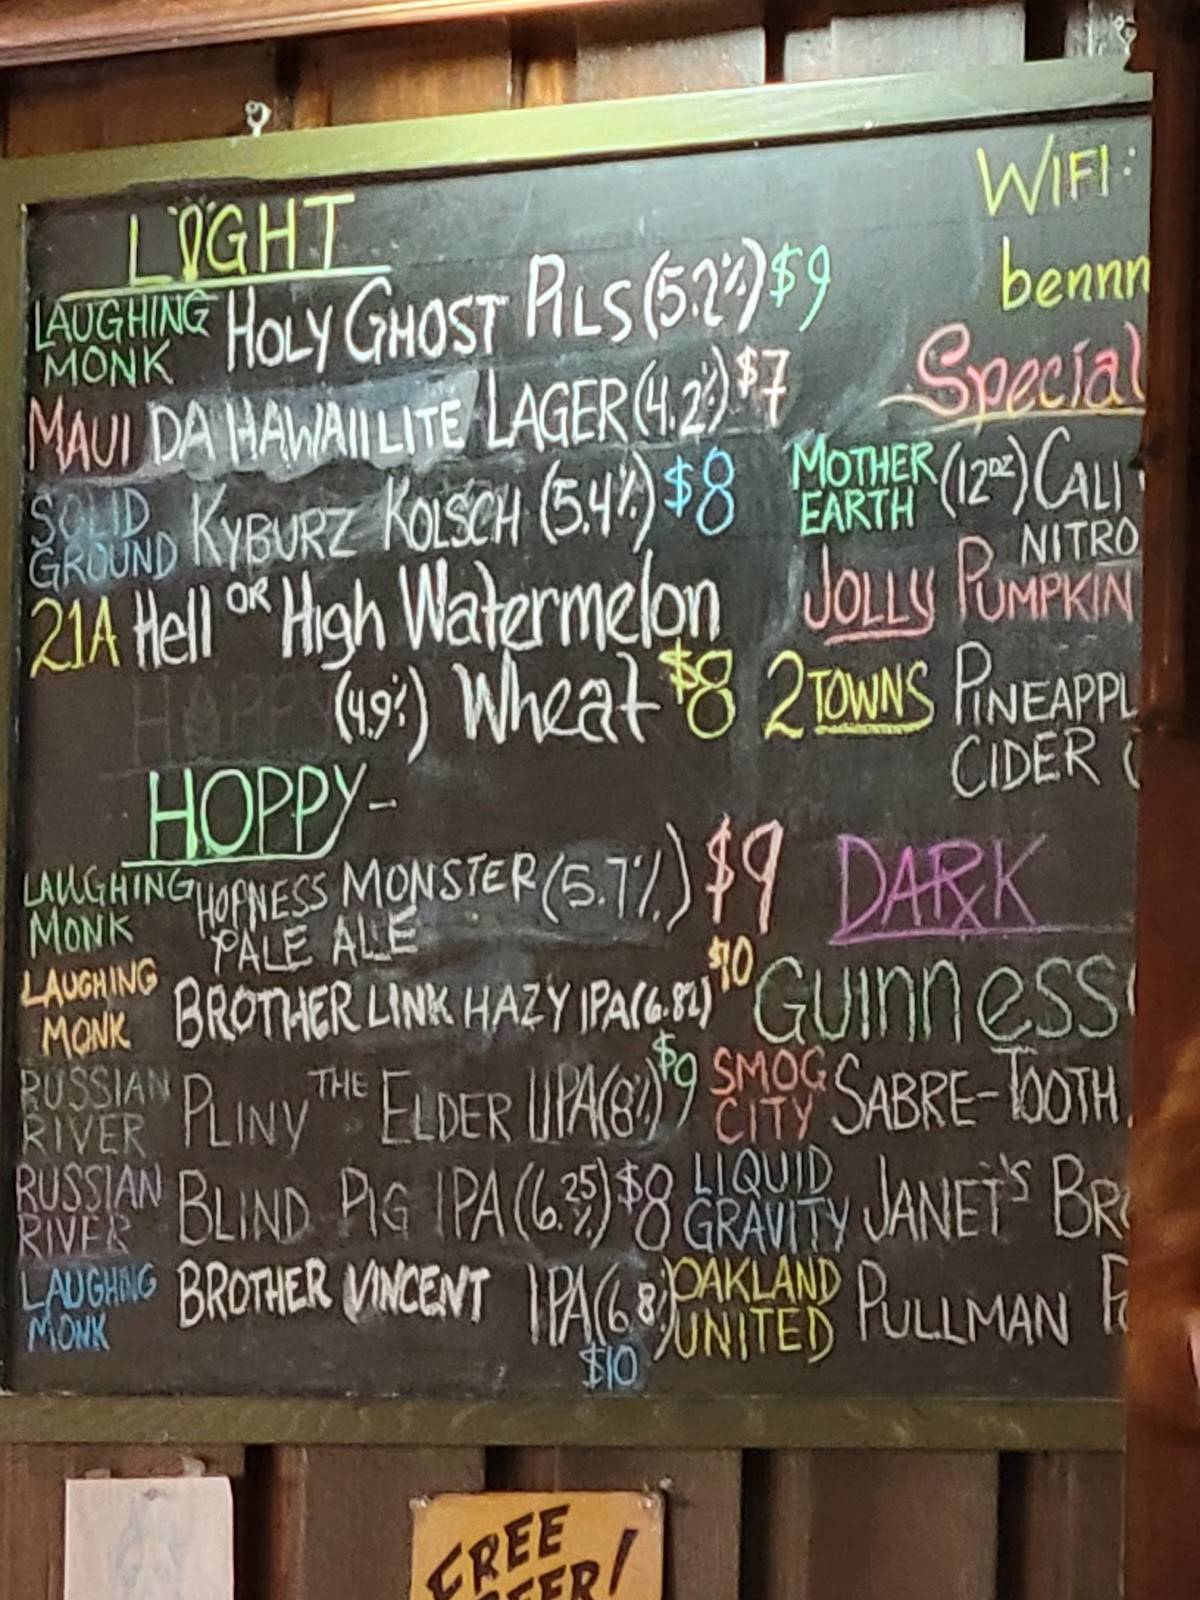 LIGHT
LAUGHING MONK HOLY GHOST PILS (5.2%) $9
MAUI DA HAWAII LITE LAGER (4.2%) $7
SOLID GROUND KYBURZ KOLSCH (5.4%) $8
21A Hell OR High Watermelon
(4.9%) Wheat $8
HOPPY-
LAUGHING MONK HOPNESS MONSTER (5.7%) $9
PALE ALE
LAUGHING MONK BROTHER LINK HAZY IPA (6.8%) $10
RUSSIAN RIVER PLINY THE ELDER IIPA (8%) $9
RUSSIAN RIVER BLIND PIG IPA (6.25%) $8
LAUGHING MONK BROTHER VINCENT IPA (6.8%)
$10
WIFI:
bennn
Special
MOTHER EARTH (12oz) CALI
NITRO
JOLLY PUMPKIN
2 TOWNS PINEAPPL
CIDER (
DARK
GUINNESS
SMOG CITY SABRE-TOOTH
LIQUID GRAVITY JANET'S BR
OAKLAND UNITED PULLMAN P
FREE